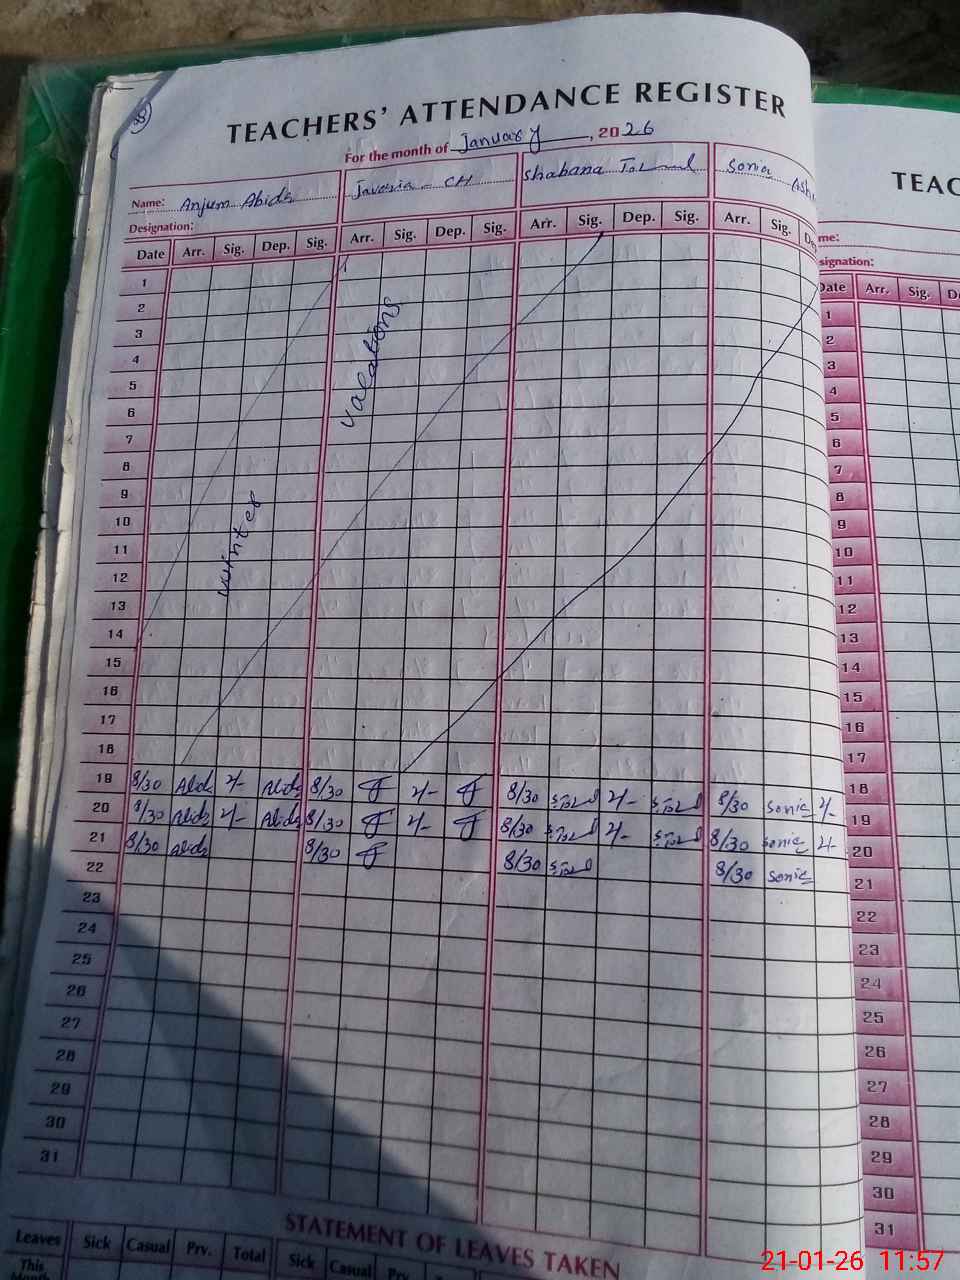 38
TEACHERS' ATTENDANCE REGISTER
For the month of January, 2026
Name: Anjum Abida Javeria - CH Shabana Sonia
Designation:
Date Arr. Sig. Dep. Sig. Arr. Sig. Dep. Sig. Arr. Sig. Dep. Sig. Arr. Sig.
1
2
3
4
5
6
7
8
9
10
11
12
13
14
15
16
17
18
winter valations
19 8/30 Abida 4- Abida 8/30 4- 8/30 4- 8/30 Sonia 4-
20 8/30 Abida 4- Abida 8/30 4- 8/30 4- 8/30 Sonia 4-
21 8/30 Abida 8/30 8/30 8/30 Sonia
22
23
24
25
26
27
28
29
30
31
STATEMENT OF LEAVES TAKEN
Leaves Sick Casual Prv. Total Sick Casual Prv.
This
TEAC
me:
signation:
Date Arr. Sig. D
1
2
3
4
5
6
7
8
9
10
11
12
13
14
15
16
17
18
19
20
21
22
23
24
25
26
27
28
29
30
31
21-01-26 11:57